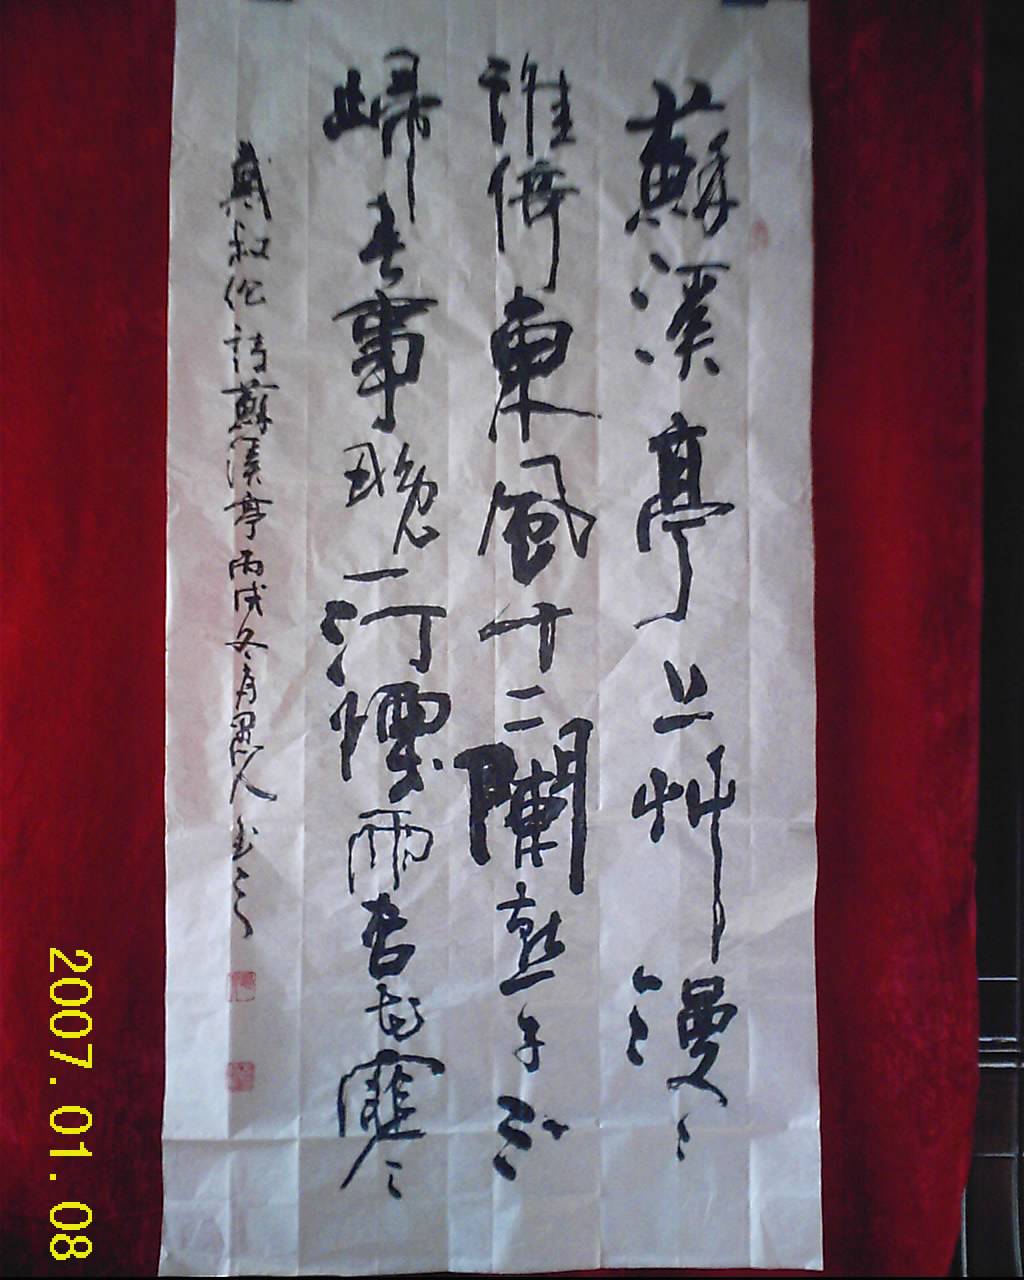 蘇溪亭上艸漫漫
誰倚東風十二闌燕子不
歸春事晚一汀煙雨杏花寒
戴叔伦詩蘇溪亭丙戌冬月愚人书之
2007. 01. 08